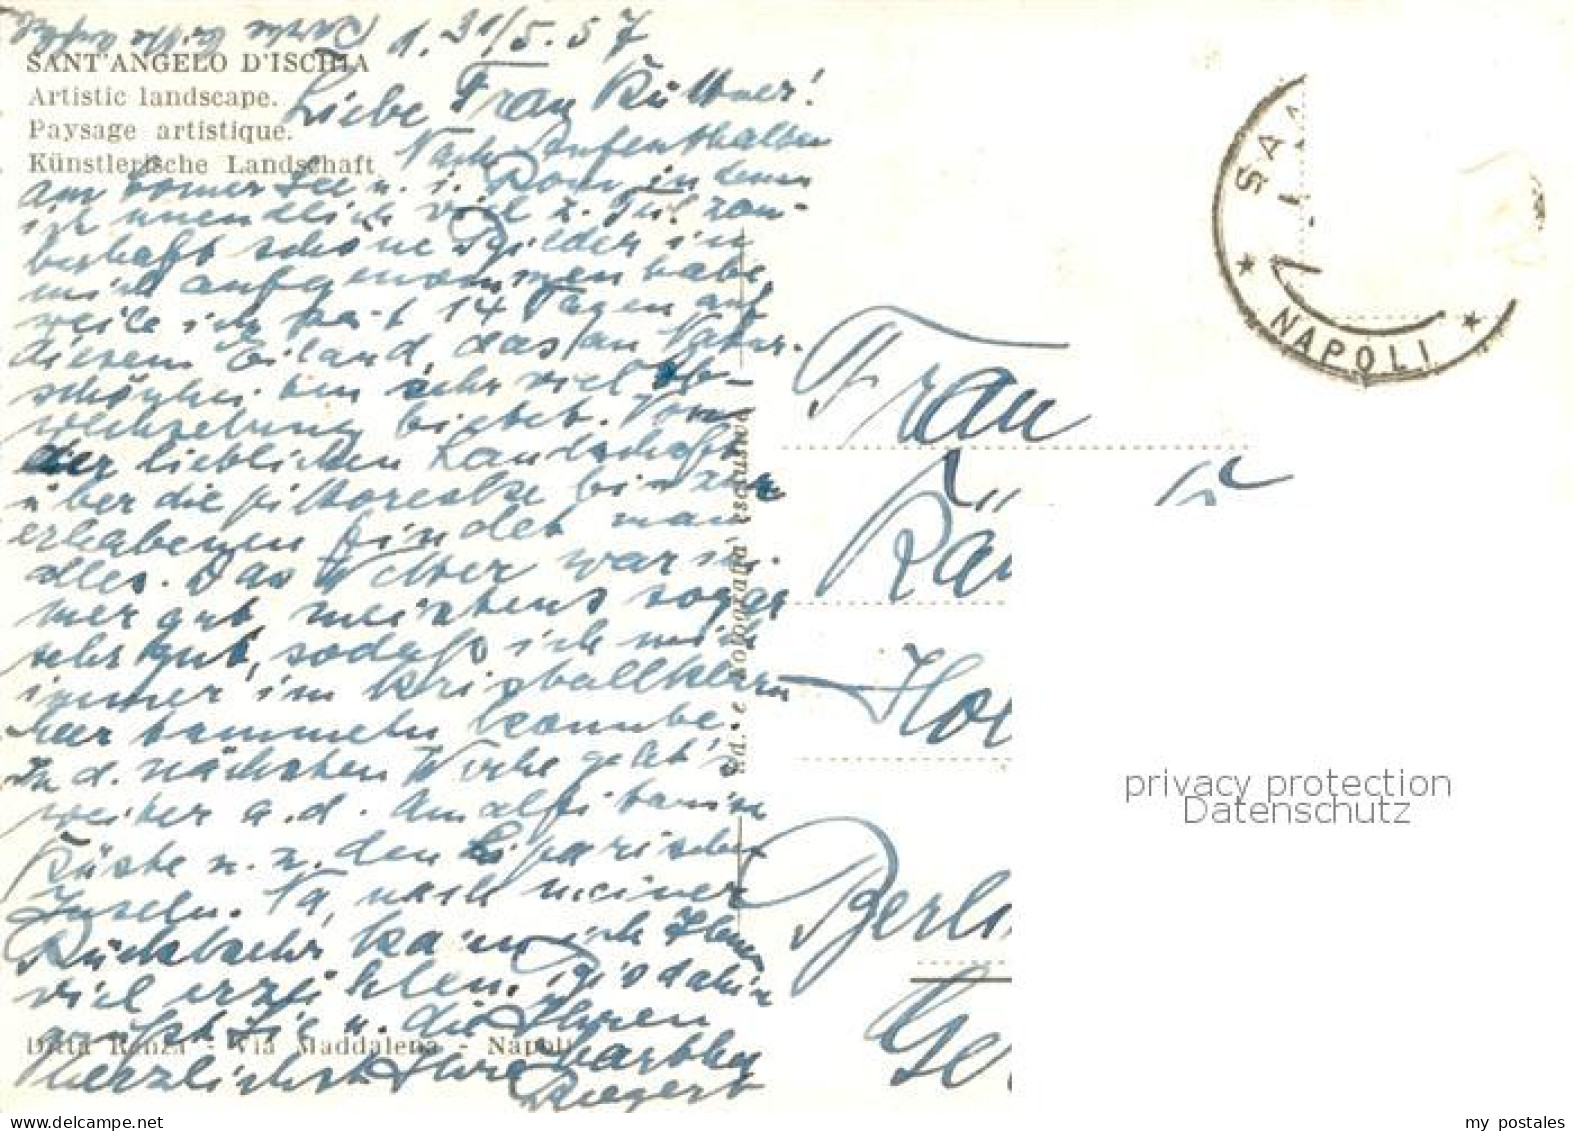 d. 31/5.57
SANT'ANGELO D'ISCHIA
Artistic landscape.
Paysage artistique.
Künstlerische Landschaft
Liebe Frau Küttner!
Nach Aufenthalten
am Comer See u. i. Rom, in denen
ich unendlich viel z. Teil zau-
berhaft schöne Bilder in
mich aufgenommen habe,
weile ich seit 14 Tagen auf
diesem Eiland, das an Natur-
schönheiten sehr viel Ab-
wechselung bietet. Vom
der lieblichen Landschaft
über die pittoreske bis zur
erhabenen findet man
alles. Das Wetter war im-
mer gut, meistens sogar
sehr gut, sodaß ich mich
immer im kristallklaren
Meer tummeln konnte.
In d. nächsten Woche geht's
weiter a. d. Amalfitanische
Küste u. z. den Liparischen
Inseln. Na, nach meiner
Rückkehr kann ich Ihnen
viel erzählen. Bis dahin
grüßt Sie u. die Ihren
herzlichst Ihre
Riegert
Ditta Renza - Via Maddalena - Napoli
Frau
Berli
NAPOLI
privacy protection
Datenschutz
my postales